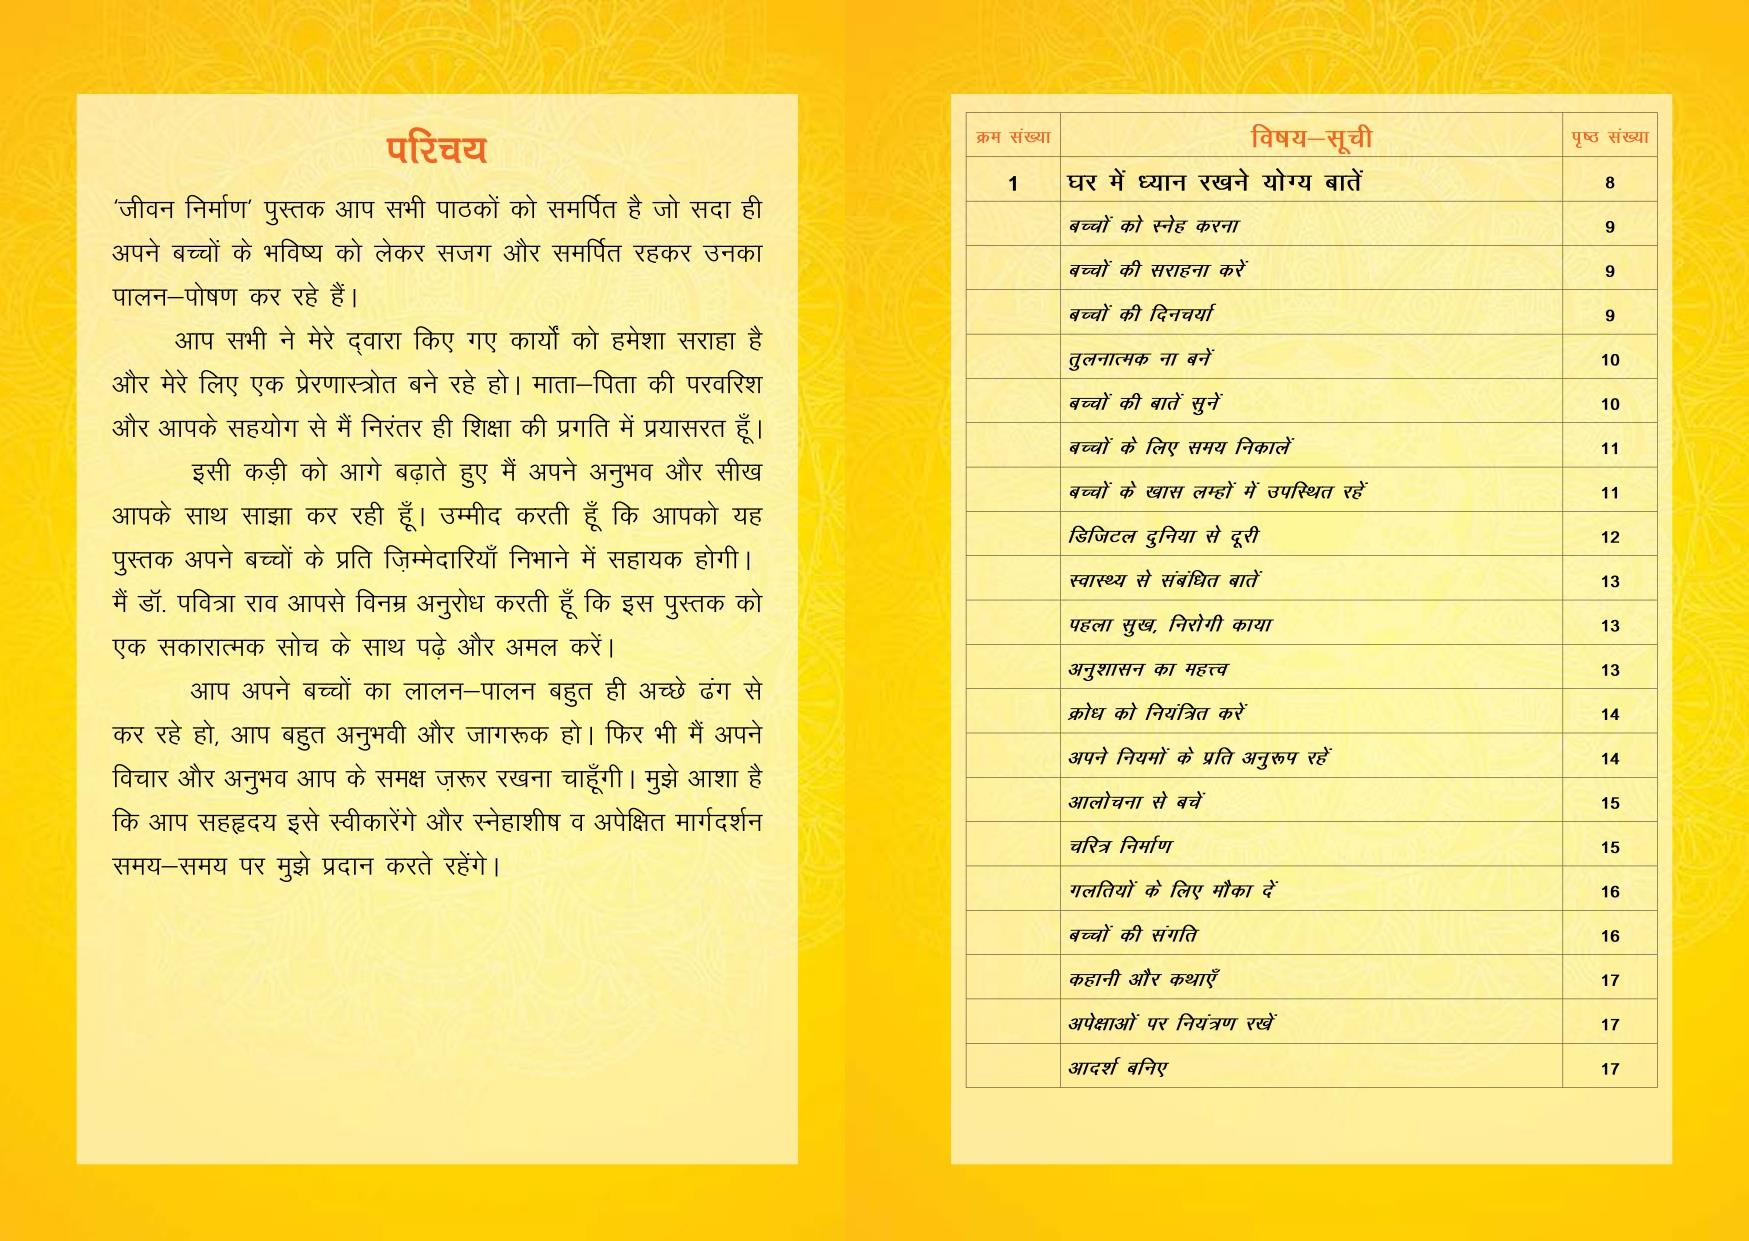 परिचय
‘जीवन निर्माण’ पुस्तक आप सभी पाठकों को समर्पित है जो सदा ही
अपने बच्चों के भविष्य को लेकर सजग और समर्पित रहकर उनका
पालन–पोषण कर रहे हैं।
आप सभी ने मेरे द्वारा किए गए कार्यों को हमेशा सराहा है
और मेरे लिए एक प्रेरणास्त्रोत बने रहे हो। माता–पिता की परवरिश
और आपके सहयोग से मैं निरंतर ही शिक्षा की प्रगति में प्रयासरत हूँ।
इसी कड़ी को आगे बढ़ाते हुए मैं अपने अनुभव और सीख
आपके साथ साझा कर रही हूँ। उम्मीद करती हूँ कि आपको यह
पुस्तक अपने बच्चों के प्रति ज़िम्मेदारियाँ निभाने में सहायक होगी।
मैं डॉ. पवित्रा राव आपसे विनम्र अनुरोध करती हूँ कि इस पुस्तक को
एक सकारात्मक सोच के साथ पढ़े और अमल करें।
आप अपने बच्चों का लालन–पालन बहुत ही अच्छे ढंग से
कर रहे हो, आप बहुत अनुभवी और जागरूक हो। फिर भी मैं अपने
विचार और अनुभव आप के समक्ष ज़रूर रखना चाहूँगी। मुझे आशा है
कि आप सहहृदय इसे स्वीकारेंगे और स्नेहाशीष व अपेक्षित मार्गदर्शन
समय–समय पर मुझे प्रदान करते रहेंगे।
क्रम संख्या विषय–सूची पृष्ठ संख्या
1 घर में ध्यान रखने योग्य बातें 8
बच्चों को स्नेह करना 9
बच्चों की सराहना करें 9
बच्चों की दिनचर्या 9
तुलनात्मक ना बनें 10
बच्चों की बातें सुनें 10
बच्चों के लिए समय निकालें 11
बच्चों के खास लम्हों में उपस्थित रहें 11
डिजिटल दुनिया से दूरी 12
स्वास्थ्य से संबंधित बातें 13
पहला सुख, निरोगी काया 13
अनुशासन का महत्त्व 13
क्रोध को नियंत्रित करें 14
अपने नियमों के प्रति अनुरूप रहें 14
आलोचना से बचें 15
चरित्र निर्माण 15
गलतियों के लिए मौका दें 16
बच्चों की संगति 16
कहानी और कथाएँ 17
अपेक्षाओं पर नियंत्रण रखें 17
आदर्श बनिए 17